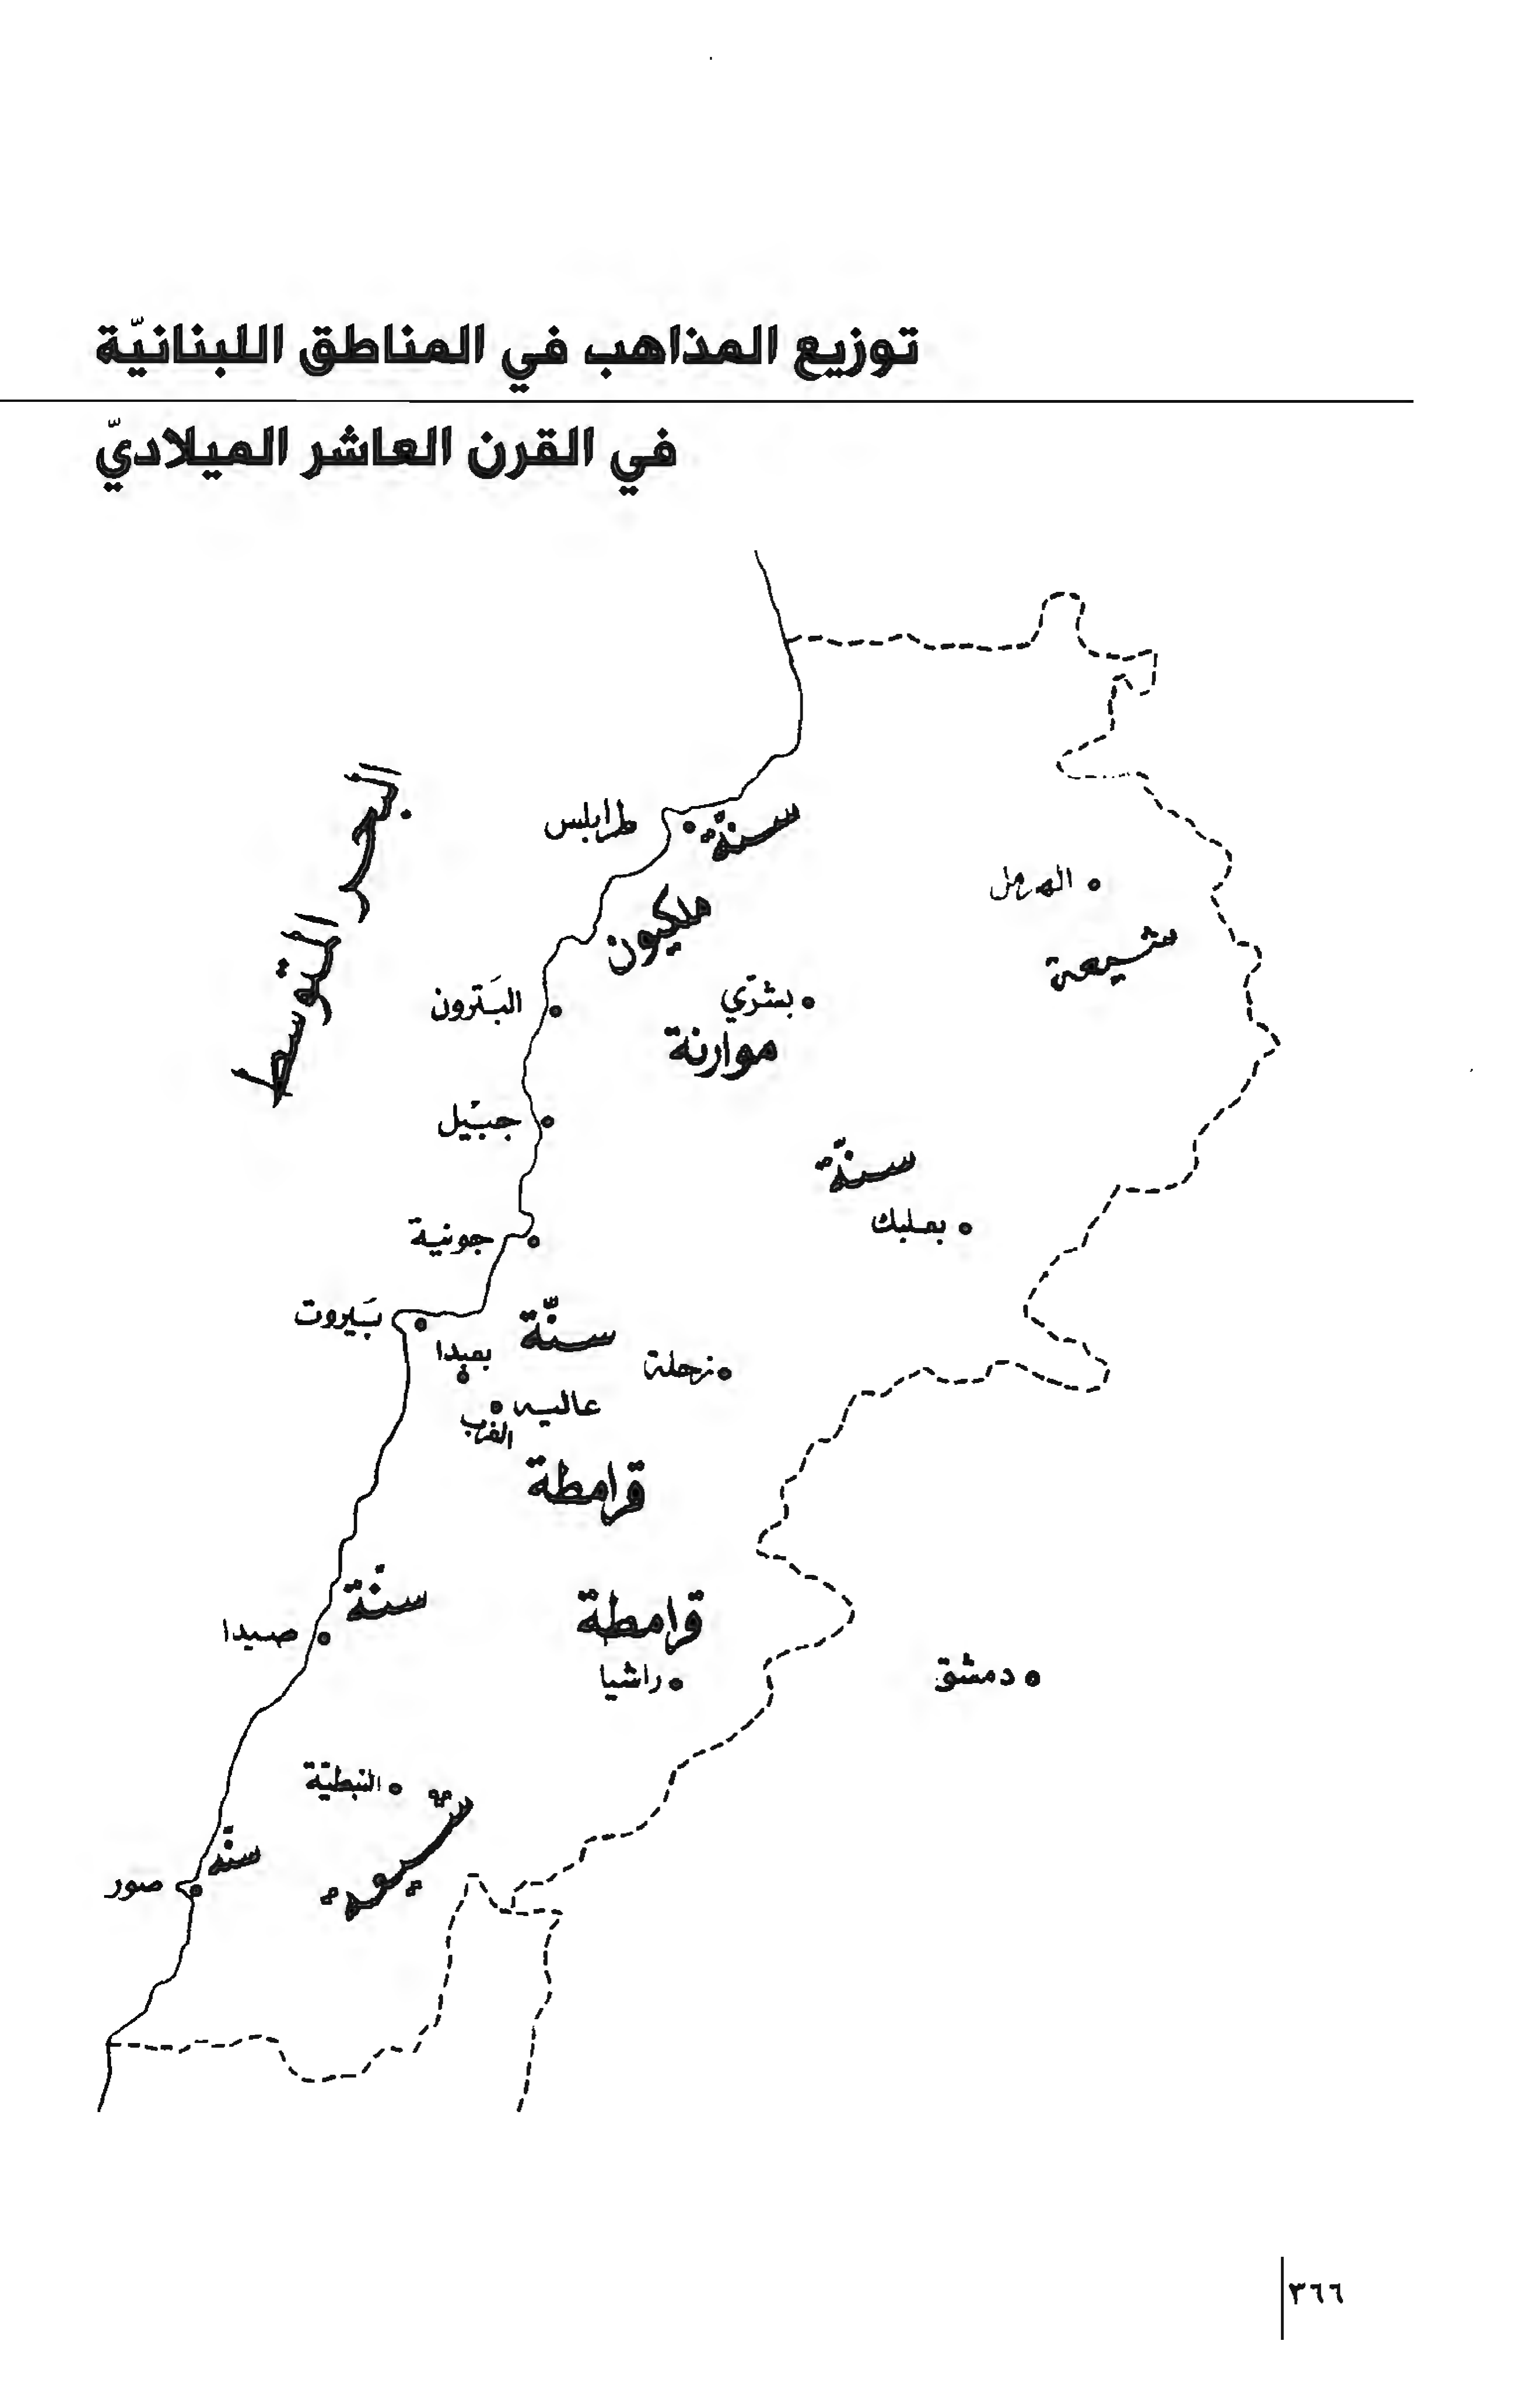 توزيع المذاهب في المناطق اللبنانيّة
في القرن العاشر الميلاديّ
البحر المتوسط
طرابلس
سنّة
الهرمل
ملكيون
شيعة
البَترون
بشرّي
موارنة
جبَيل
سنّة
بعلبك
جونية
بَيروت
سنّة
بعبدا
زحلة
عاليه
الغرب
قرامطة
سنّة
قرامطة
صيدا
راشيا
دمشق
النبطيّة
شيعة
سنّة
صور
٣٦٦